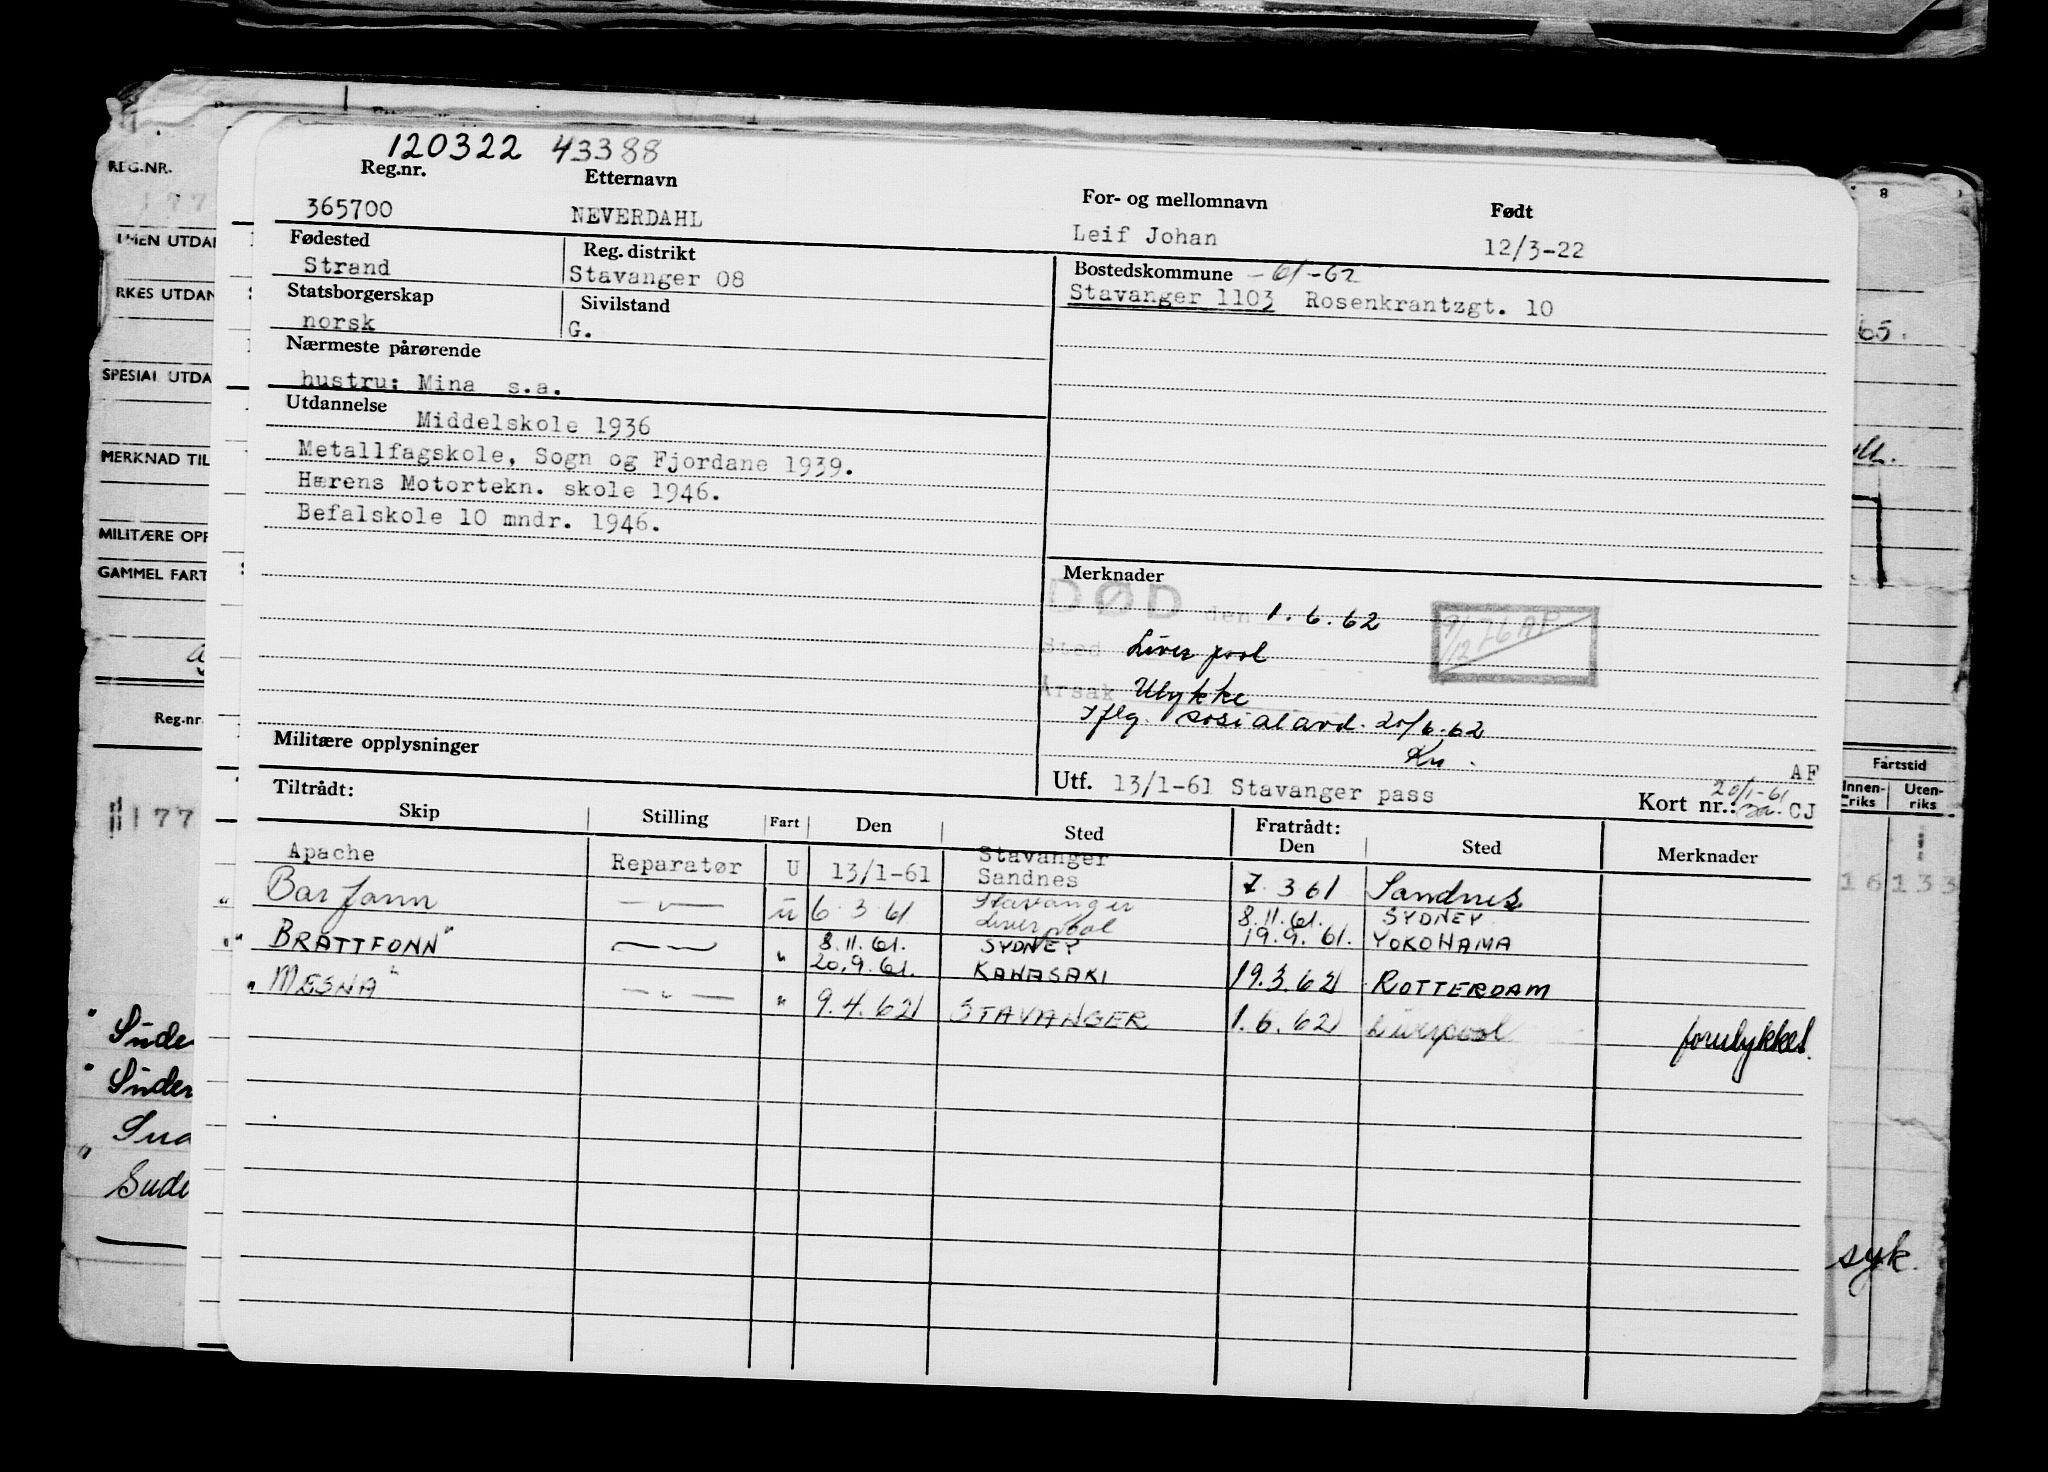 120322 43388
Reg.nr. Etternavn For- og mellomnavn Født
365700 NEVERDAHL Leif Johan 12/3-22
Fødested Reg. distrikt Bostedskommune -61-62
Strand Stavanger 08 Stavanger 1103 Rosenkrantzgt. 10
Statsborgerskap Sivilstand
norsk G.
Nærmeste pårørende
hustru: Mina s.a.
Utdannelse Middelskole 1936
Metallfagskole, Sogn og Fjordane 1939.
Hærens Motortekn. skole 1946.
Befalskole 10 mndr. 1946.
Merknader
DØD den 1.6.62
Sted Liverpool
Årsak Ulykke
Iflg. sosialavd. 20/6-62
Kn.
9/12 76 AP
Militære opplysninger
Utf. 13/1-61 Stavanger pass
AF
20/1-61
Kort nr.: CJ
Tiltrådt: Fratrådt:
Skip Stilling Fart Den Sted Den Sted Merknader
Apache Reparatør U 13/1-61 Stavanger Sandnes 7.3 61 Sandnes
" Barfonn — " — u 6.3.61 Stavanger Liverpool 8.11.61. SYDNEY 19.9.61. YOKOHAMA
" "BRATTFONN" — " 8.11.61. SYDNEY 20.9.61. KAWASAKI 19.3.62 ROTTERDAM
" MESNA" — " — " 9.4.62 STAVANGER 1.6.62 Liverpool forulykket.
REG.NR.
177
MERKNAD TIL
MILITÆRE OPP
GAMMEL FART
Reg.nr.
177
" Süde
" Süder
" Sude
8
65.
Fartstid
Innen-riks Uten-riks
16 133
syk.